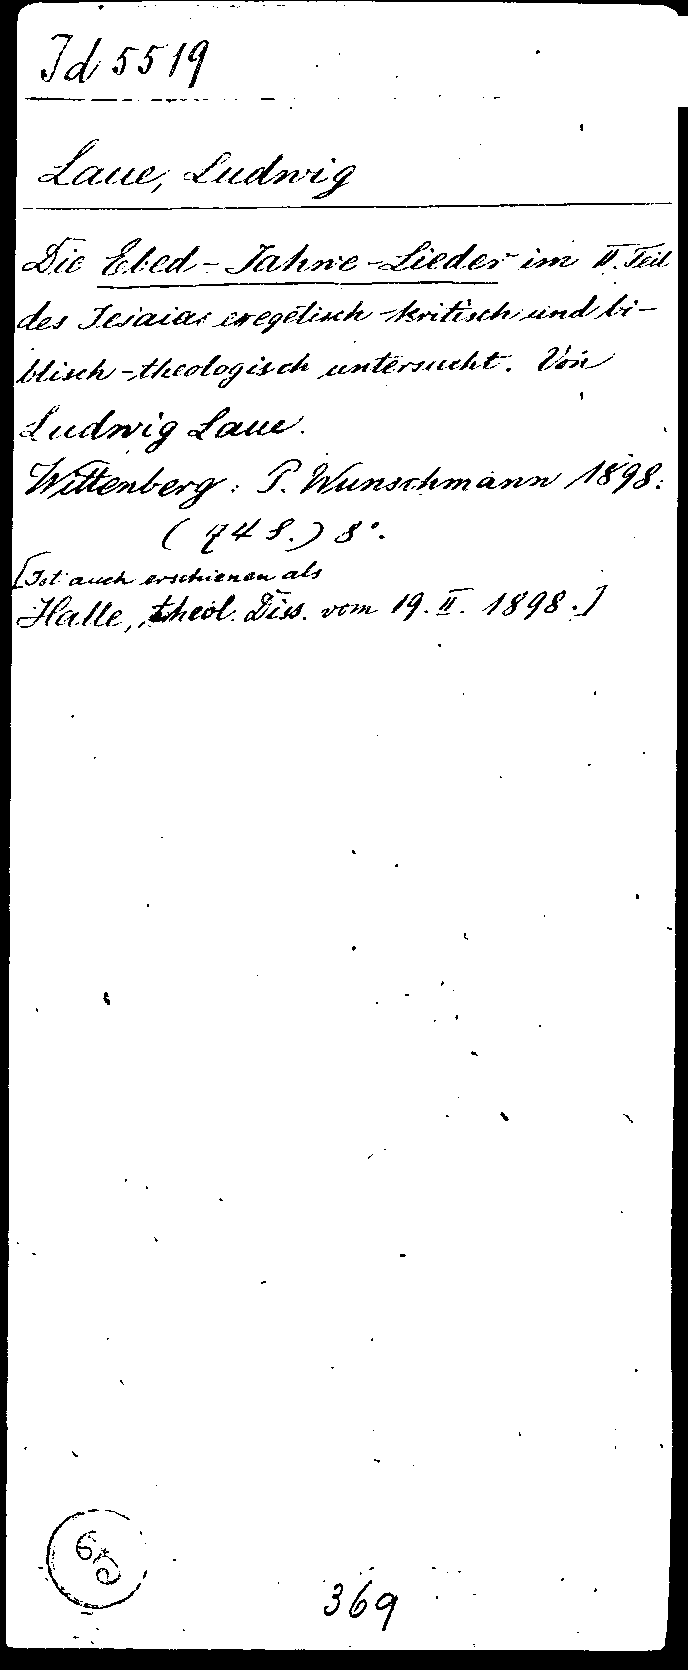 Id 5519
Laue, Ludwig
Die Ebed-Jahwe-Lieder im II. Teil
des Jesaias exegetisch-kritisch und bi-
blisch-theologisch untersucht. Von
Ludwig Laue.
Wittenberg: P. Wunschmann 1898.
(74 S.) 8°.
[Ist auch erschienen als
Halle, theol. Diss. vom 19. II. 1898.]
369